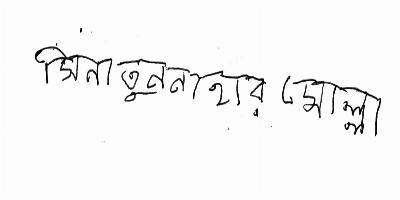 মিনাতুননাহার মোল্লা